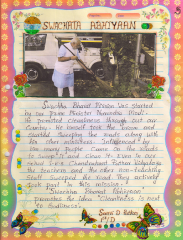 SWACHATA ABHIYAAN
Swachha Bharat Mission was started
by our Prime Minister Narendra Modi.
He promoted cleanliness through out our
Country. He himself took the broom and
started sweeping the roads along with
his other ministers. Influenced by
this many people came on the roads
to sweep
and clean it. Even in our
school
the
teachers and the other non-teaching
staff sweeped the road. They actively
took part in this mission.
"Swachha Bharat Abhiyaan
promotes the idea "Cleanliness is next
to Godliness".